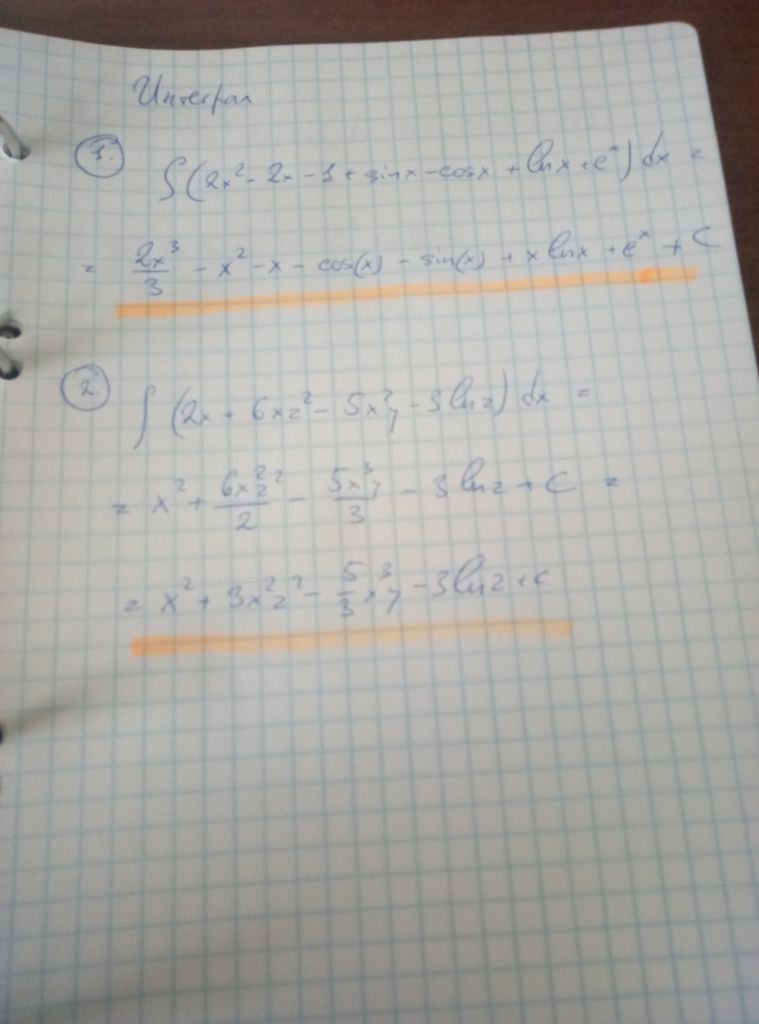 Интеграл
1. ∫(2x² - 2x - 1 + sinx - cosx + lnx + eˣ) dx =
= 2x³/3 - x² - x - cos(x) - sin(x) + x lnx + eˣ + C
2. ∫(2x + 6xz² - 5x²y - 3lnz) dx =
= x² + 6x²z²/2 - 5x³y/3 - 3lnz + C =
= x² + 3x²z² - 5/3 x³y - 3lnz + C